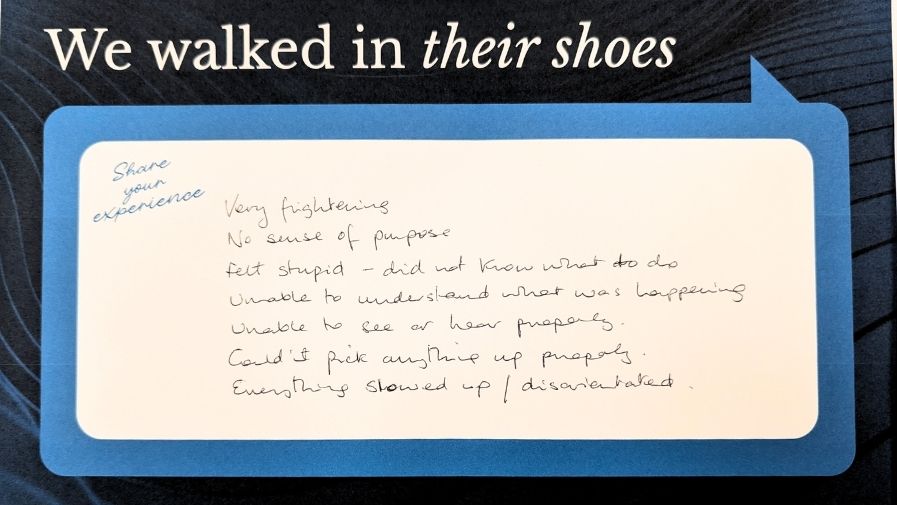 We walked in their shoes
Share
your
experience
Very frightening
No sense of purpose
felt stupid - did not know what to do
Unable to understand what was happening
Unable to see or hear properly.
Could't pick anything up properly.
Everything slowed up / disorientated.